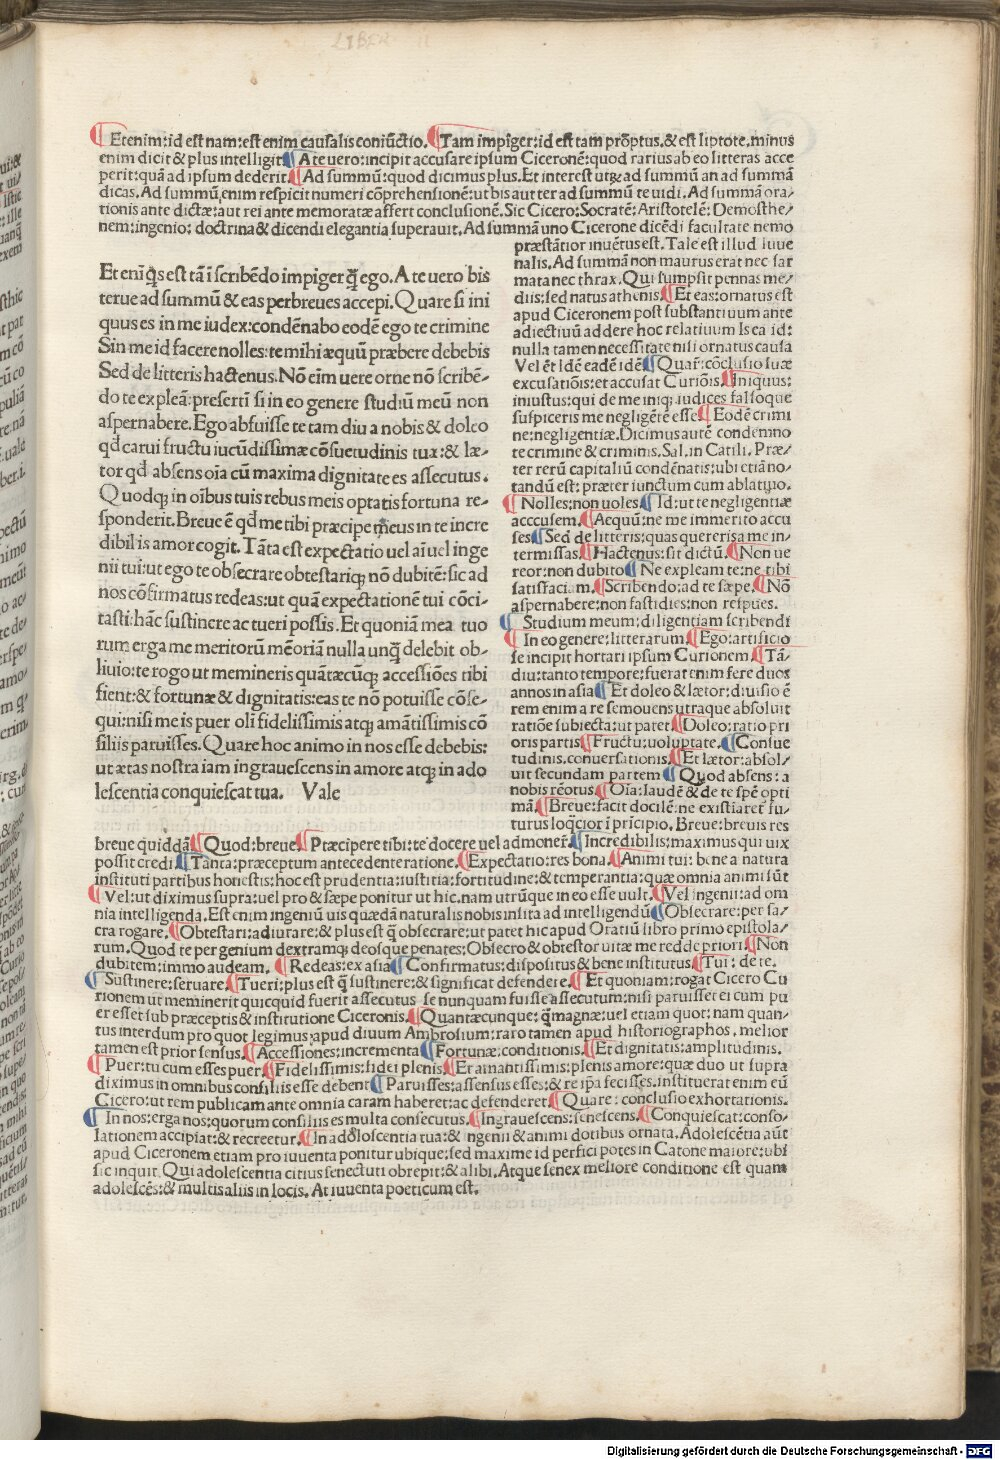 LIBER II
¶ Etenim: id est nam: est enim causalis coniūctio. ¶ Tam impiger: id est tam prōptus. & est liptote. minus
enim dicit & plus intelligit ¶ A te uero: incipit accusare ipsum Ciceronē: quod rarius ab eo litteras acce
perit: quā ad ipsum dederit. ¶ Ad summū: quod dicimus plus. Et interest utrꝗ ad summū an ad summā
dicas. Ad summū enim respicit numeri cōprehensionē: ut bis aut ter ad summū te uidi. Ad summā ora/
tionis ante dictæ: aut rei ante memoratæ affert conclusionē. Sic Cicero: Socratē: Aristotelē: Demosthe/
nem: ingenio: doctrina & dicendi elegantia superauit. Ad summā uno Cicerone dicēdi facultate nemo
Et enī q̄s est tā ī scribēdo impiger q̄ ego. A te uero bis
terue ad summū & eas perbreues accepi. Quare si ini
quus es in me iudex: condēnabo eodē ego te crimine
Sin me id facere nolles: te mihi æquū præbere debebis
Sed de litteris hactenus. Nō eīm uereor ne nō scribē-
do te expleā: presertī si in eo genere studiū meū non
aspernabere. Ego abfuisse te tam diu a nobis & doleo
qd̄ carui fructu iucūdissimæ cōsuetudinis tuæ: & læ-
tor qd̄ absens oīa cū maxima dignitate es assecutus.
Quodqꝫ in oībus tuis rebus meis optatis fortuna re-
sponderit. Breue ē qd̄ me tibi præcipe meus in te incre
dibilis amor cogit. Tāta est expectatio uel aīuel inge
nii tui: ut ego te obsecrare obtestariqꝫ nō dubitē: sic ad
nos cōfirmatus redeas: ut quā expectationē tui cōci-
tasti: hāc sustinere ac tueri possis. Et quoniā mea tuo
rum erga me meritorū mēoriā nulla unq̄ delebit ob-
liuio: te rogo ut memineris quātæcūqꝫ accessiōes tibi
fient: & fortunæ & dignitatis: eas te nō potuisse cōse-
qui: nisi meis puer olī fidelissimis atqꝫ amātissimis cō
siliis paruisses. Quare hoc animo in nos esse debebis:
ut ætas nostra iam ingrauescens in amore atqꝫ in ado
lescentia conquiescat tua. Vale
præstātior inuētus est. Tale est illud iuue
nalis. Ad summā non maurus erat nec sar
mata nec thrax. Qui sumpsit pennas me/
diis: sed natus athenis. ¶ Et eas: ornatus est
apud Ciceronem post substantiuum ante
adiectiuū addere hoc relatiuum Is ea id:
nulla tamen necessitate nisi ornatus causa
Vel ēt Idē eadē idē ¶ Quar̄: cōclusio suæ
excusatiōis: et accusat Curiōis. ¶ Iniquus:
iniustus: qui de me iniqꝫ iudices falsoque
suspiceris me negligētē esse ¶ Eodē crimi
ne: negligentiæ. Dicimus autē condemno
te crimine & criminis. Sal. in Catili. Præ/
ter rerū capitaliū condēnatis: ubi etiā no/
tandū est: præter iunctum cum ablatiuo.
¶ Nolles: non uoles ¶ Id: ut te negligentiæ
acccusem. ¶ Aequū: ne me immerito accu
ses ¶ Sed de litteris: quas quereris a me in/
termissas. ¶ Hactenus: sit dictū. ¶ Non ue
reor: non dubito ¶ Ne expleam te: ne tibi
satisfaciam. ¶ Scribendo: ad te sæpe. ¶ Nō
aspernabere: non fastidies: non respues.
¶ Studium meum: diligentiam scribendi
¶ In eo genere: litterarum ¶ Ego: artificio
se incipit hortari ipsum Curionem ¶ Tā/
diu: tanto tempore: fuerat enim fere duos
annos in asia ¶ Et doleo & lætor: diuisio ē
rem enim a re semouens utraque absoluit
ratiōe subiecta: ut patet ¶ Doleo: ratio pri
oris partis ¶ Fructu: uoluptate. ¶ Consue
tudinis. conuersationis. ¶ Et lætor: absol/
uit secundam partem ¶ Quod absens: a
nobis reōtus. ¶ Oīa: laudē & de te spē opti
mā. ¶ Breue: facit docilē: ne existiaret fu/
turus loq̄cior ī prīcipio. Breue: breuis res
breue quiddā ¶ Quod: breue ¶ Præcipere tibi: te docere uel admoner̄. ¶ Incredibilis: maximus qui uix
possit credi ¶ Tanta: præceptum antecedente ratione. ¶ Expectatio: res bona. ¶ Animi tui: bene a natura
instituti partibus honestis: hoc est prudentia: iustitia: fortitudine: & temperantia: quæ omnia animi sūt
¶ Vel: ut diximus supra: uel pro & sæpe ponitur ut hic. nam utrūque in eo esse uult. ¶ Vel ingenii: ad om
nia intelligenda. Est enim ingeniū uis quædā naturalis nobis insita ad intelligendū ¶ Obsecrare: per sa/
cra rogare. ¶ Obtestari: adiurare: & plus est q̄ obsecrare: ut patet hic apud Oratiū libro primo epistola/
rum. Quod te per genium dextramqꝫ deosque penates: Obsecro & obtestor uitæ me redde priori. ¶ Non
dubitem: immo audeam. ¶ Redeas: ex asia ¶ Confirmatus: dispositus & bene institutus ¶ Tui: de te.
¶ Sustinere: seruare. ¶ Tueri: plus est q̄ sustinere: & significat defendere. ¶ Et quoniam: rogat Cicero Cu
rionem ut meminerit quicquid fuerit assecutus se nunquam fuisse assecutum: nisi paruisset ei cum pu
er esset sub præceptis & institutione Ciceronis. ¶ Quantæcunque: q̄ magnæ: uel etiam quot: nam quan/
tus interdum pro quot legimus apud diuum Ambrosium: raro tamen apud historiographos. melior
tamen est prior sensus. ¶ Accessiones: incrementa ¶ Fortunæ: conditionis. ¶ Et dignitatis: amplitudinis.
¶ Puer: tu cum esses puer. ¶ Fidelissimis: fidei plenis. ¶ Et amantissimis: plenis amore: quæ duo ut supra
diximus in omnibus consiliis esse debent ¶ Paruisses: assensus esses: & re ipsa fecisses. instituerat enim eū
Cicero: ut rem publicam ante omnia caram haberet: ac defenderet. ¶ Quare: conclusio exhortationis.
¶ In nos: erga nos: quorum consiliis es multa consecutus. ¶ Ingrauescens: senescens. ¶ Conquiescat: conso/
lationem accipiat: & recreetur. ¶ In adoloscentia tua: & ingenii & animi dotibus ornata. Adolescētia aūt
apud Ciceronem etiam pro iuuenta ponitur ubique: sed maxime id perfici potes in Catone maiore: ubi
sic inquit. Qui adolescentia citius senectuti obrepit: & alibi. Atque senex meliore conditione est quam
adolescēs: & multis aliis in locis. At iuuenta poeticum est.
Digitalisierung gefördert durch die Deutsche Forschungsgemeinschaft - DFG